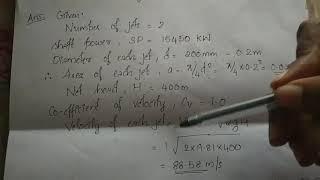 Ans: Given:
Number of jet = 2
Shaft power, SP = 15450 kW
Diameter of each jet, d = 200mm = 0.2m
∴ Area of each jet, a = π/4 d² = π/4 × 0.2² = 0.0
Net head, H = 400m
Co-efficient of velocity, Cv = 1.0
Velocity of each jet =
= 1 √2×9.81×400
= 88.58 m/s